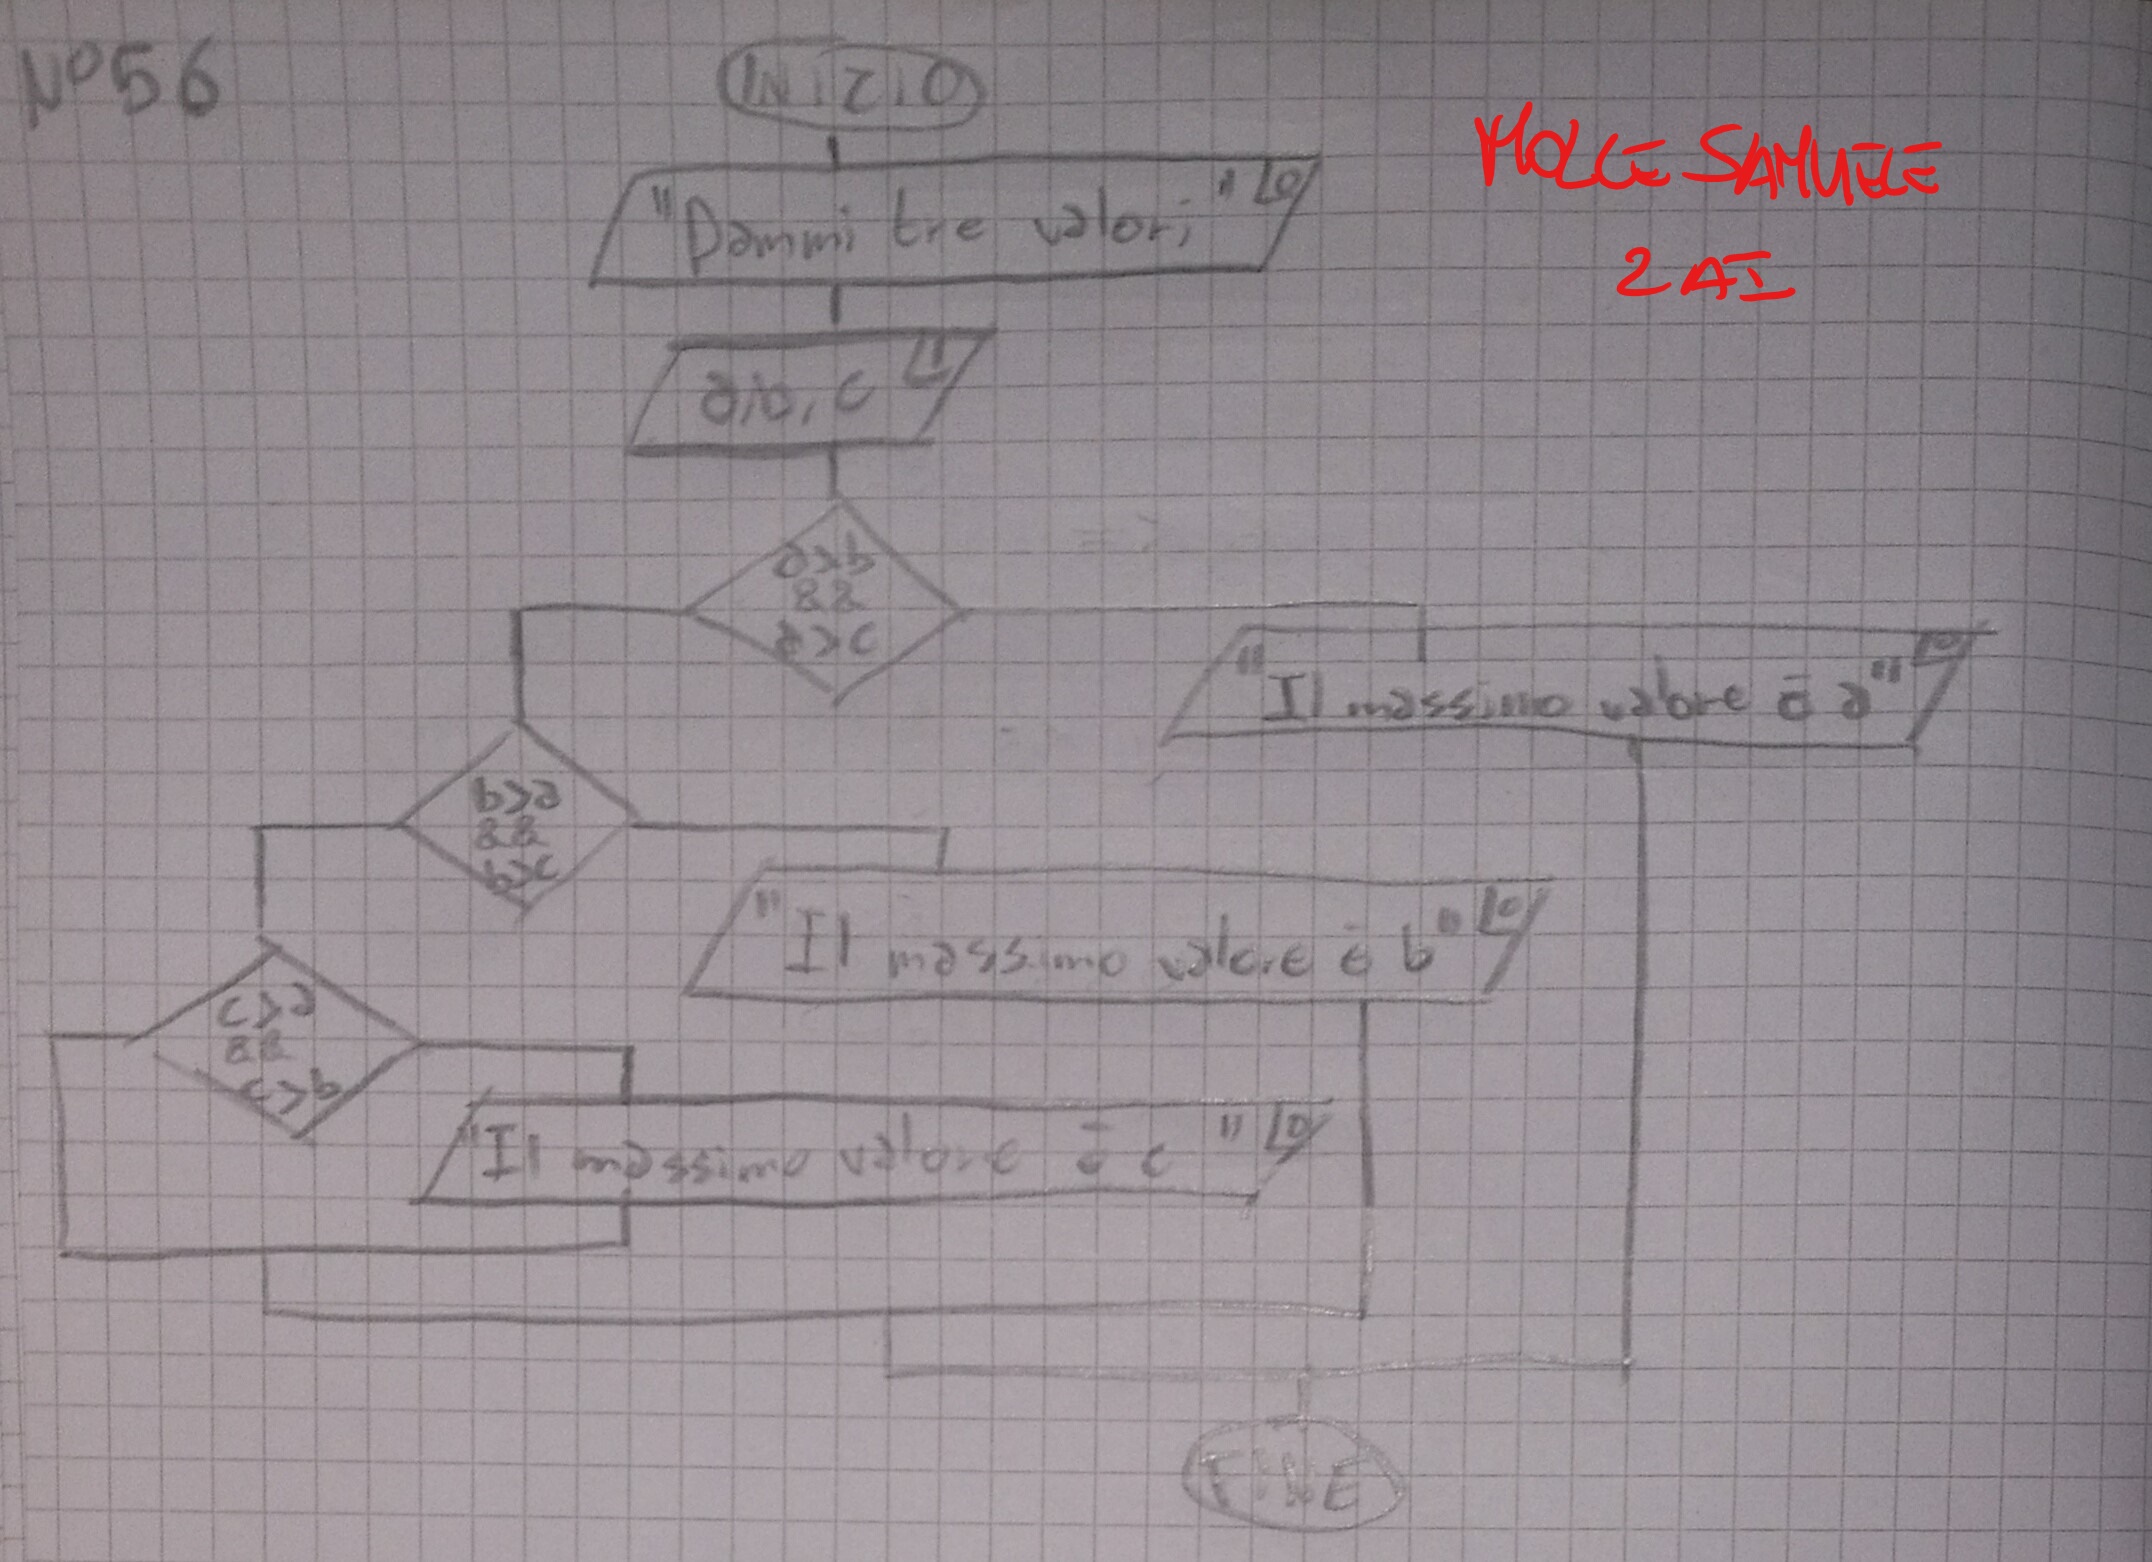 N°56
INIZIO
MOLCE SAMUELE
2 AI
"Dammi tre valori" O
a, b, c I
a>b
&&
a>c
"Il massimo valore è a" O
b>a
&&
b>c
"Il massimo valore è b" O
c>a
&&
c>b
"Il massimo valore è c" O
FINE